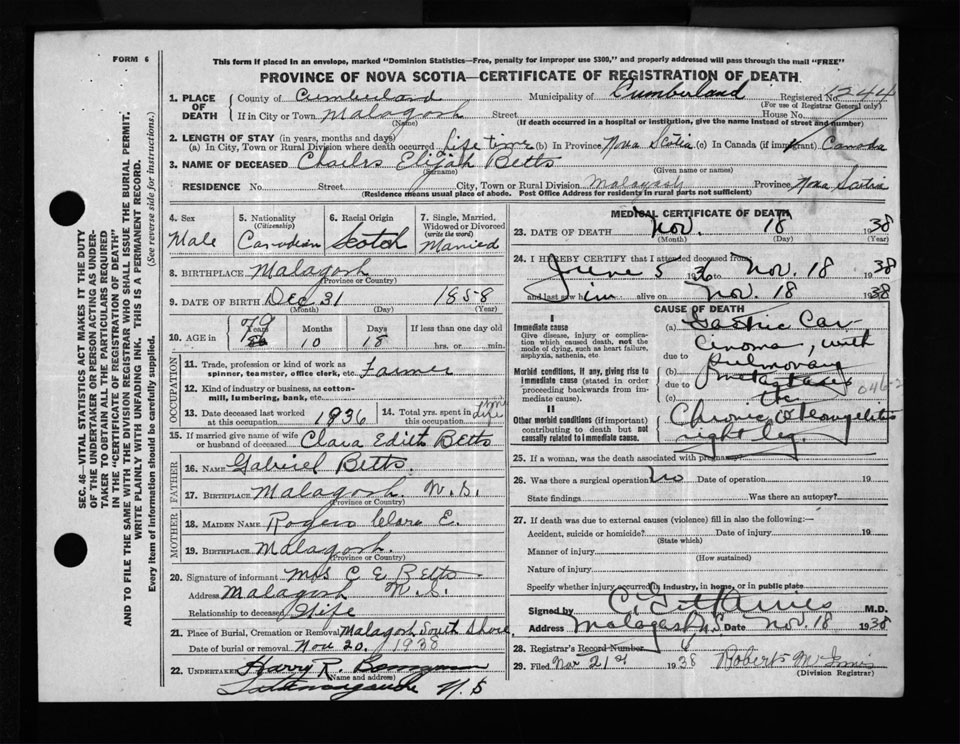 FORM 6
This form if placed in an envelope, marked "Dominion Statistics—Free, penalty for improper use $300," and properly addressed will pass through the mail "FREE"
PROVINCE OF NOVA SCOTIA—CERTIFICATE OF REGISTRATION OF DEATH
SEC. 46—VITAL STATISTICS ACT MAKES IT THE DUTY
OF THE UNDERTAKER OR PERSON ACTING AS UNDER-
TAKER TO OBTAIN ALL THE PARTICULARS REQUIRED
IN THE "CERTIFICATE OF REGISTRATION OF DEATH"
AND TO FILE THE SAME WITH THE DIVISION REGISTRAR WHO SHALL ISSUE THE BURIAL PERMIT.
WRITE PLAINLY WITH UNFADING INK. THIS IS A PERMANENT RECORD.
Every item of information should be carefully supplied. (See reverse side for instructions.)
1. PLACE OF DEATH County of Cumberland Municipality of Cumberland Registered No. 1244
(For use of Registrar General only)
If in City or Town Malagash Street House No.
(Name) (If death occurred in a hospital or institution, give the name instead of street and number)
2. LENGTH OF STAY (in years, months and days)
(a) In City, Town or Rural Division where death occurred Life time (b) In Province Nova Scotia (c) In Canada (if immigrant) Canada
3. NAME OF DECEASED Charles Elijah Betts
(Surname) (Given name or names)
RESIDENCE No. Street City, Town or Rural Division Malagash Province Nova Scotia
(Residence means usual place of abode. Post Office Address for residents in rural parts not sufficient)
4. Sex Male
5. Nationality (Citizenship) Canadian
6. Racial Origin Scotch
7. Single, Married, Widowed or Divorced (write the word) Married
8. BIRTHPLACE Malagash
(Province or Country)
9. DATE OF BIRTH Dec 31 1858
(Month) (Day) (Year)
10. AGE in Years 79 Months 10 Days 18 If less than one day old hrs. or min.
OCCUPATION
11. Trade, profession or kind of work as spinner, teamster, office clerk, etc. Farmer
12. Kind of industry or business, as cotton-mill, lumbering, bank, etc.
13. Date deceased last worked at this occupation 1936
14. Total yrs. spent in this occupation life time
15. If married give name of wife or husband of deceased Clara Edith Betts
FATHER
16. NAME Gabriel Betts.
17. BIRTHPLACE Malagash. N.S.
(Province or Country)
MOTHER
18. MAIDEN NAME Rogers Clara E.
19. BIRTHPLACE Malagash.
(Province or Country)
20. Signature of informant Mrs C E Betts
Address Malagash N.S.
Relationship to deceased Wife
21. Place of Burial, Cremation or Removal Malagash South Shore
Date of burial or removal Nov 20, 1938
22. UNDERTAKER Harry R.
(Name and address)
Tatamagouche N.S
MEDICAL CERTIFICATE OF DEATH
23. DATE OF DEATH Nov. 18 1938
(Month) (Day) (Year)
24. I HEREBY CERTIFY that I attended deceased from
June 5 1936 to Nov. 18 1938
and last saw him alive on Nov. 18 1938
CAUSE OF DEATH
I
Immediate cause
Give disease, injury or complication which caused death, not the mode of dying, such as heart failure, asphyxia, asthenia, etc.
Morbid conditions, if any, giving rise to immediate cause (stated in order proceeding backwards from immediate cause).
II
Other morbid conditions (if important) contributing to death but not causally related to immediate cause.
(a) Gastric Car-
cinoma, with
due to
(b) pulmonary
due to metastases
(c) 046-2
Chronic Osteomyelitis
right leg.
25. If a woman, was the death associated with pregnancy
26. Was there a surgical operation No Date of operation 19
State findings Was there an autopsy?
27. If death was due to external causes (violence) fill in also the following:—
Accident, suicide or homicide? Date of injury 19
(State which)
Manner of injury
(How sustained)
Nature of injury
Specify whether injury occurred in industry, in home, or in public place
Signed by M.D.
Address Malagash N.S Date Nov. 18 1938
28. Registrar's Record Number
29. Filed Nov 21st 1938 Roberts
(Division Registrar)